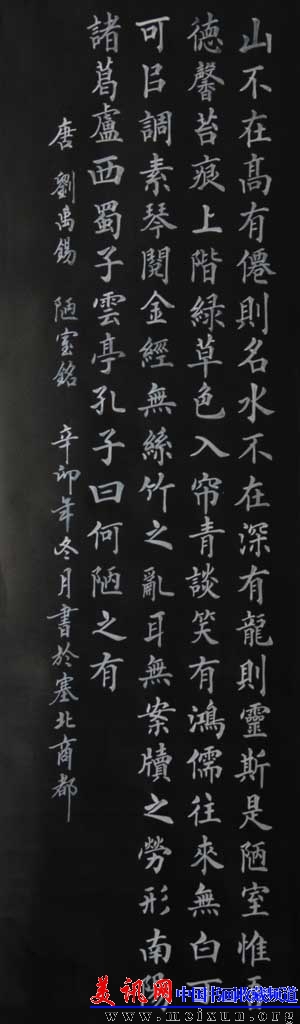 山不在高有僊則名水不在深有龍則靈斯是陋室惟吾
德馨苔痕上階緑草色入帘青談笑有鴻儒往來無白丁
可㠯調素琴閱金經無絲竹之亂耳無案牘之勞形南陽
諸葛盧西蜀子雲亭孔子曰何陋之有
唐 劉禹錫 陋室銘 辛卯年冬月書於塞北商都
美讯网 中国书画收藏频道
www.meixun.org